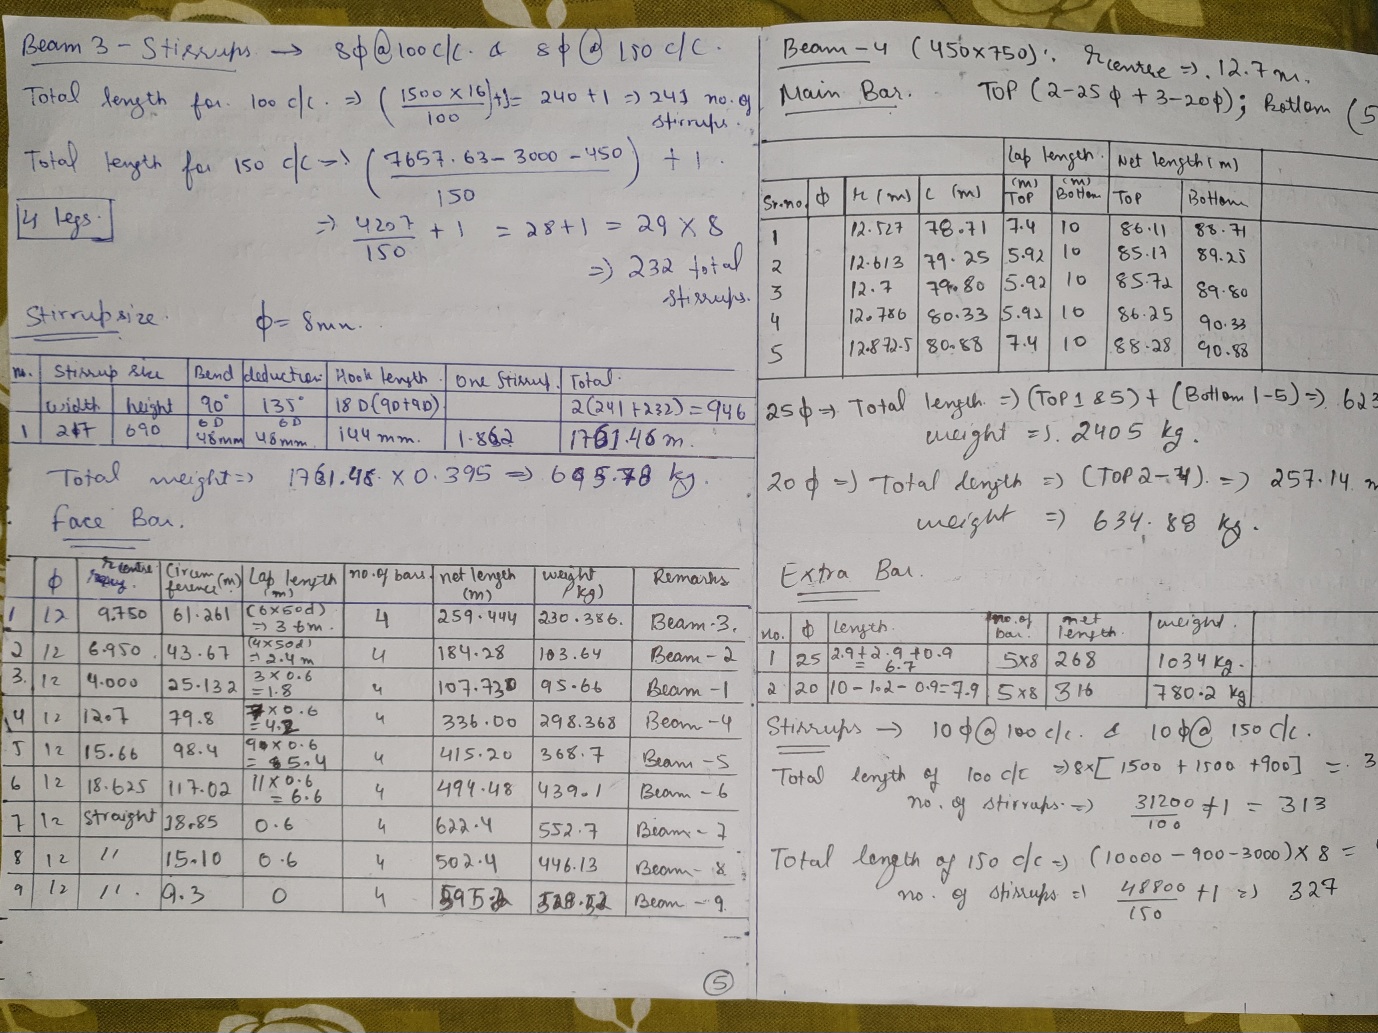 Beam 3 - Stirrups → 8ϕ @ 100 c/c. & 8ϕ @ 150 c/c.
Total length for 100 c/c. => (1500 x 16 / 100)+1 = 240 +1 => 241 no. of stirrups.
Total length for 150 c/c => (7657.63 - 3000 - 450 / 150) + 1.
4 legs.
=> 4207 / 150 + 1 = 28+1 = 29 x 8
=> 232 total stirrups.
Stirrup size. ϕ = 8mm.
no. | Stirrup size | Bend deduction | Hook length | One Stirrup. | Total.
width | height | 90° | 135° | 18 D (9D+9D) | 2(241+232) = 946
1 | 247 | 690 | 6D 48mm | 6D 48mm | 144 mm. | 1.862 | 1761.46 m.
Total weight => 1761.48 x 0.395 => 695.78 kg.
Face Bar.
ϕ | r centre | Circumference (m) | Lap length (m) | no. of bars | net length (m) | weight (kg) | Remarks
1 | 12 | 9.750 | 61.261 | (6x50d) => 3.6m. | 4 | 259.444 | 230.386. | Beam-3.
2 | 12 | 6.950 | 43.67 | (4x50d) = 2.4m | 4 | 184.28 | 163.64 | Beam-2
3. | 12 | 4.000 | 25.132 | 3 x 0.6 = 1.8 | 4 | 107.730 | 95.66 | Beam-1
4 | 12 | 12.7 | 79.8 | 7 x 0.6 = 4.2 | 4 | 336.00 | 298.368 | Beam-4
5 | 12 | 15.66 | 98.4 | 9 x 0.6 = 5.4 | 4 | 415.20 | 368.7 | Beam-5
6 | 12 | 18.625 | 117.02 | 11 x 0.6 = 6.6 | 4 | 494.48 | 439.1 | Beam-6
7 | 12 | Straight | 38.85 | 0.6 | 4 | 622.4 | 552.7 | Beam-7
8 | 12 | " | 15.10 | 0.6 | 4 | 502.4 | 446.13 | Beam-8
9 | 12 | " . | 9.3 | 0 | 4 | 595.2 | 528.52 | Beam-9
5
Beam-4 (450x750): r centre =>. 12.7 m.
Main Bar. TOP (2-25ϕ + 3-20ϕ); Bottom (5
Sr.no. | ϕ | r (m) | C (m) | Lap length. (m) TOP | (m) Bottom | Net length (m) Top | Bottom
1 | 12.527 | 78.71 | 7.4 | 10 | 86.11 | 88.71
2 | 12.613 | 79.25 | 5.92 | 10 | 85.17 | 89.25
3 | 12.7 | 79.80 | 5.92 | 10 | 85.72 | 89.80
4 | 12.786 | 80.33 | 5.92 | 10 | 86.25 | 90.33
5 | 12.872.5 | 80.88 | 7.4 | 10 | 88.28 | 90.88
25ϕ => Total length => (TOP 1 & 5) + (Bottom 1-5) => 623
weight =>. 2405 kg.
20ϕ => Total length => (TOP 2-4). => 257.14 m
weight => 634.88 kg.
Extra Bar.
no. | ϕ | Length. | no. of bar. | net length. | weight.
1 | 25 | 2.9+2.9+0.9 = 6.7 | 5x8 | 268 | 1034 kg.
2 | 20 | 10-1.2-0.9=7.9 | 5x8 | 316 | 780.2 kg
Stirrups → 10ϕ @ 100 c/c. & 10ϕ @ 150 c/c.
Total length of 100 c/c => 8x[1500 + 1500 + 900] = 3
no. of stirrups. => 31200 / 100 + 1 = 313
Total length of 150 c/c => (10000 - 900 - 3000) x 8 =
no. of stirrups => 48800 / 150 + 1 => 327